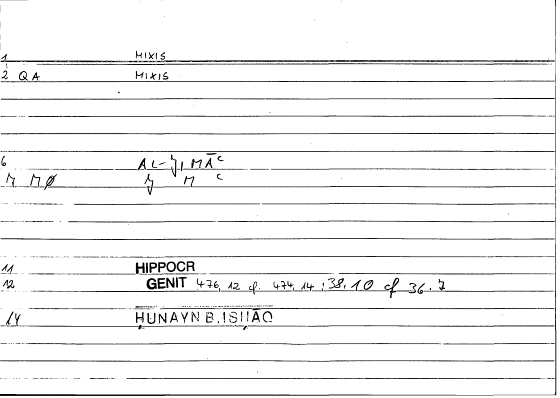 1 MIXIS
2 QA MIXIS
6 AL-ǦIMĀC
Ǧ MØ Ǧ M C
11 HIPPOCR
12 GENIT 476, 12 cf. 474, 14 ; 38, 10 cf 36. 7
14 ḤUNAYN B. ISḤĀQ